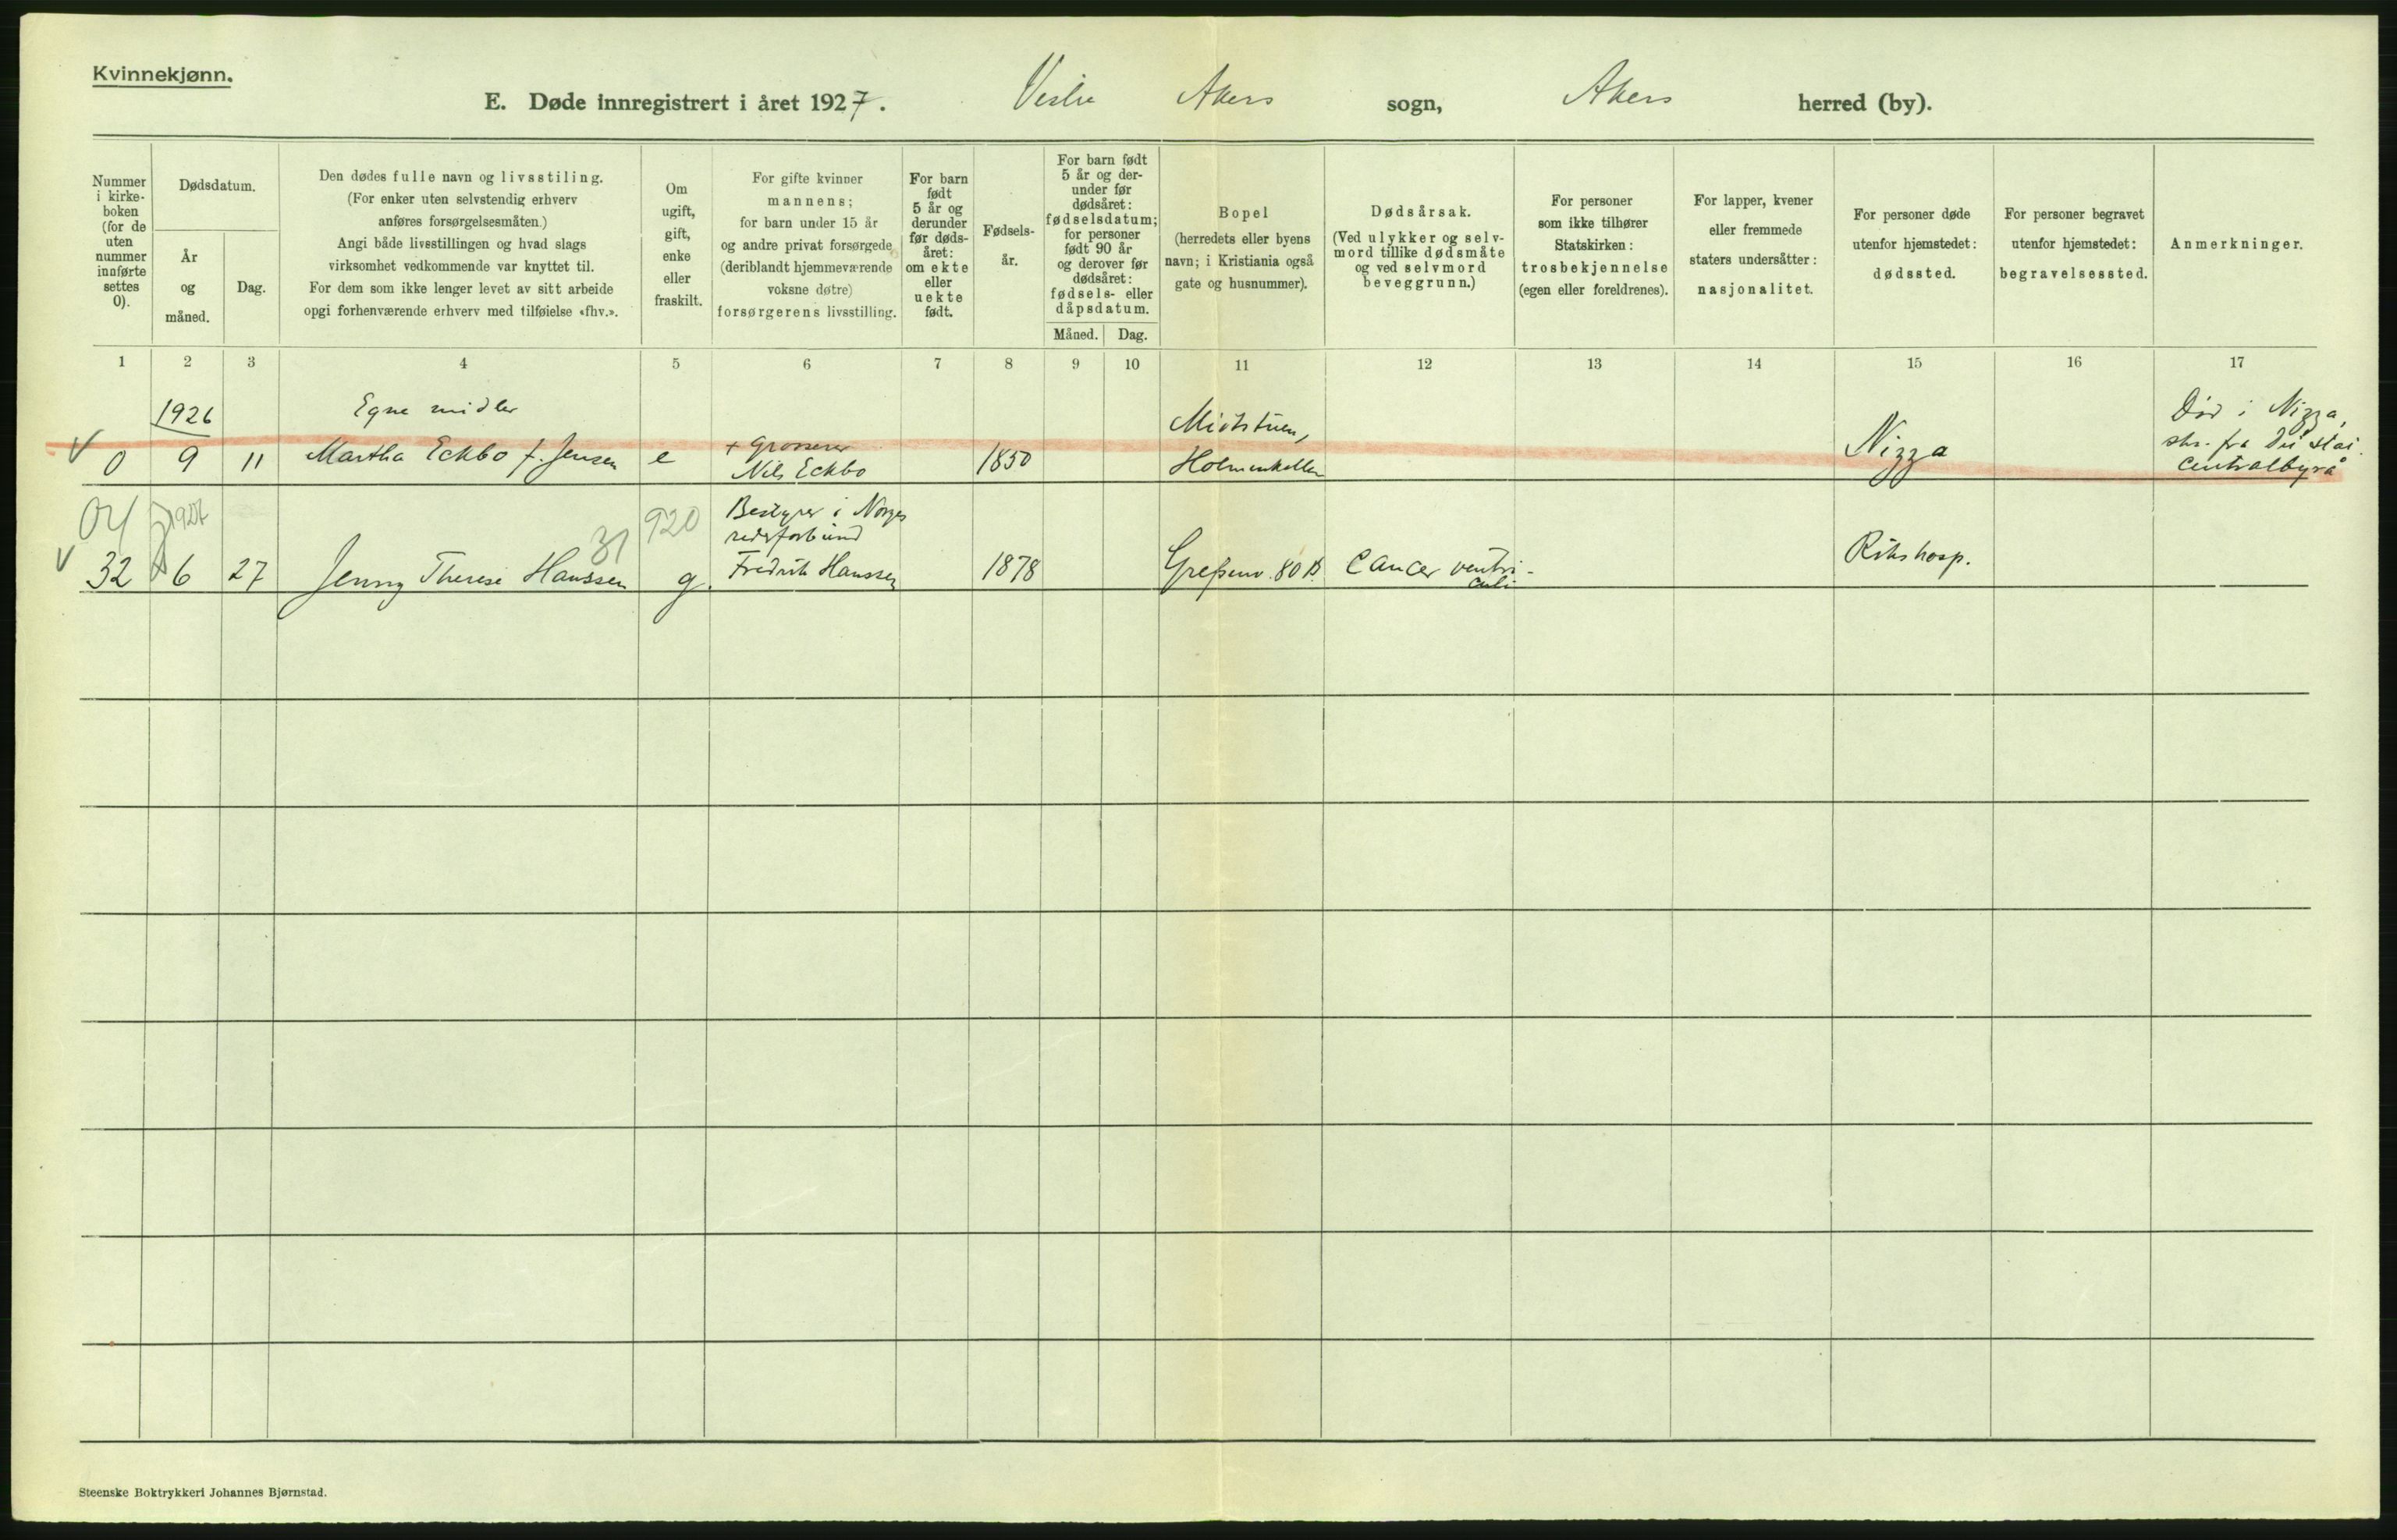 Kvinnekjønn.
E. Døde innregistrert i året 1927. Vestre Akers sogn, Akers herred (by).
Nummer i kirke-boken (for de uten nummer innførte settes 0).
Dødsdatum.
År og måned.
Dag.
Den dødes fulle navn og livsstiling.
(For enker uten selvstendig erhverv
anføres forsørgelsesmåten.)
Angi både livsstillingen og hvad slags
virksomhet vedkommende var knyttet til.
For dem som ikke lenger levet av sitt arbeide
opgi forhenværende erhverv med tilføielse «fhv.».
Om
ugift,
gift,
enke
eller
fraskilt.
For gifte kvinner
mannens;
for barn under 15 år
og andre privat forsørgede
(deriblandt hjemmeværende
voksne døtre)
forsørgerens livsstilling.
For barn
født
5 år og
derunder
før døds-
året:
om ekte
eller
uekte
født.
Fødsels-
år.
For barn født
5 år og der-
under før
dødsåret:
fødselsdatum;
for personer
født 90 år
og derover før
dødsåret:
fødsels- eller
dåpsdatum.
Måned.
Dag.
Bopel
(herredets eller byens
navn; i Kristiania også
gate og husnummer).
Dødsårsak.
(Ved ulykker og selv-
mord tillike dødsmåte
og ved selvmord
beveggrunn.)
For personer
som ikke tilhører
Statskirken:
trosbekjennelse
(egen eller foreldrenes).
For lapper, kvener
eller fremmede
staters undersåtter:
nasjonalitet.
For personer døde
utenfor hjemstedet:
dødssted.
For personer begravet
utenfor hjemstedet:
begravelsessted.
Anmerkninger.
1 2 3 4 5 6 7 8 9 10 11 12 13 14 15 16 17
1926 Egne midler Midtstuen, Død i Nizza,
0 9 11 Martha Eckbo f. Jensen e + Grosserer 1850 Nizza skr. fra Det stat.
Nils Eckbo Holmenkollen Centralbyrå
1927 31 920 Bestyrer i Norges
Rikshosp.
32 6 27 Jenny Therese Hanssen g. Fredrik Hanssen 1878 Grefsenv. 80 B Cancer ventri-
culi
Steenske Boktrykkeri Johannes Bjørnstad.